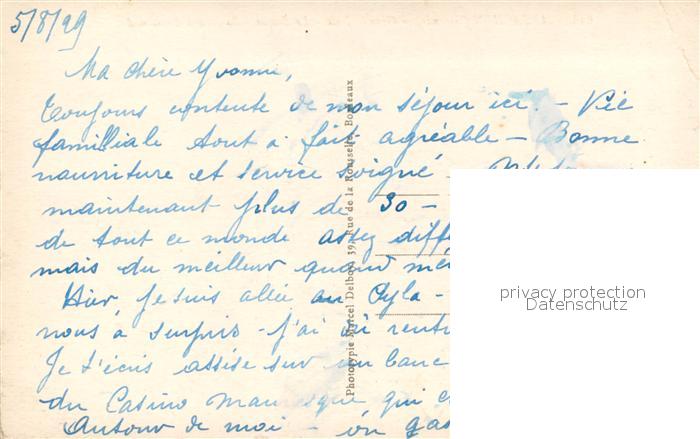 5/8/29
Ma chère Yvonne,
Toujours contente de mon séjour ici. - Vie
familliale tout à fait agréable - Bonne
nourriture et service soigné -
maintenant plus de 30 -
de tout ce monde assez diff
mais du meilleur quand mê
Hier, Je suis allée au Pyla -
nous a surpris - j'ai dû rentr
Je t'écris assise sur un banc
du Casino mauresque, qui
Autour de moi - on gas
Phototypie Marcel Delboy, 39, Rue de la Rousselle, Bordeaux
privacy protection
Datenschutz